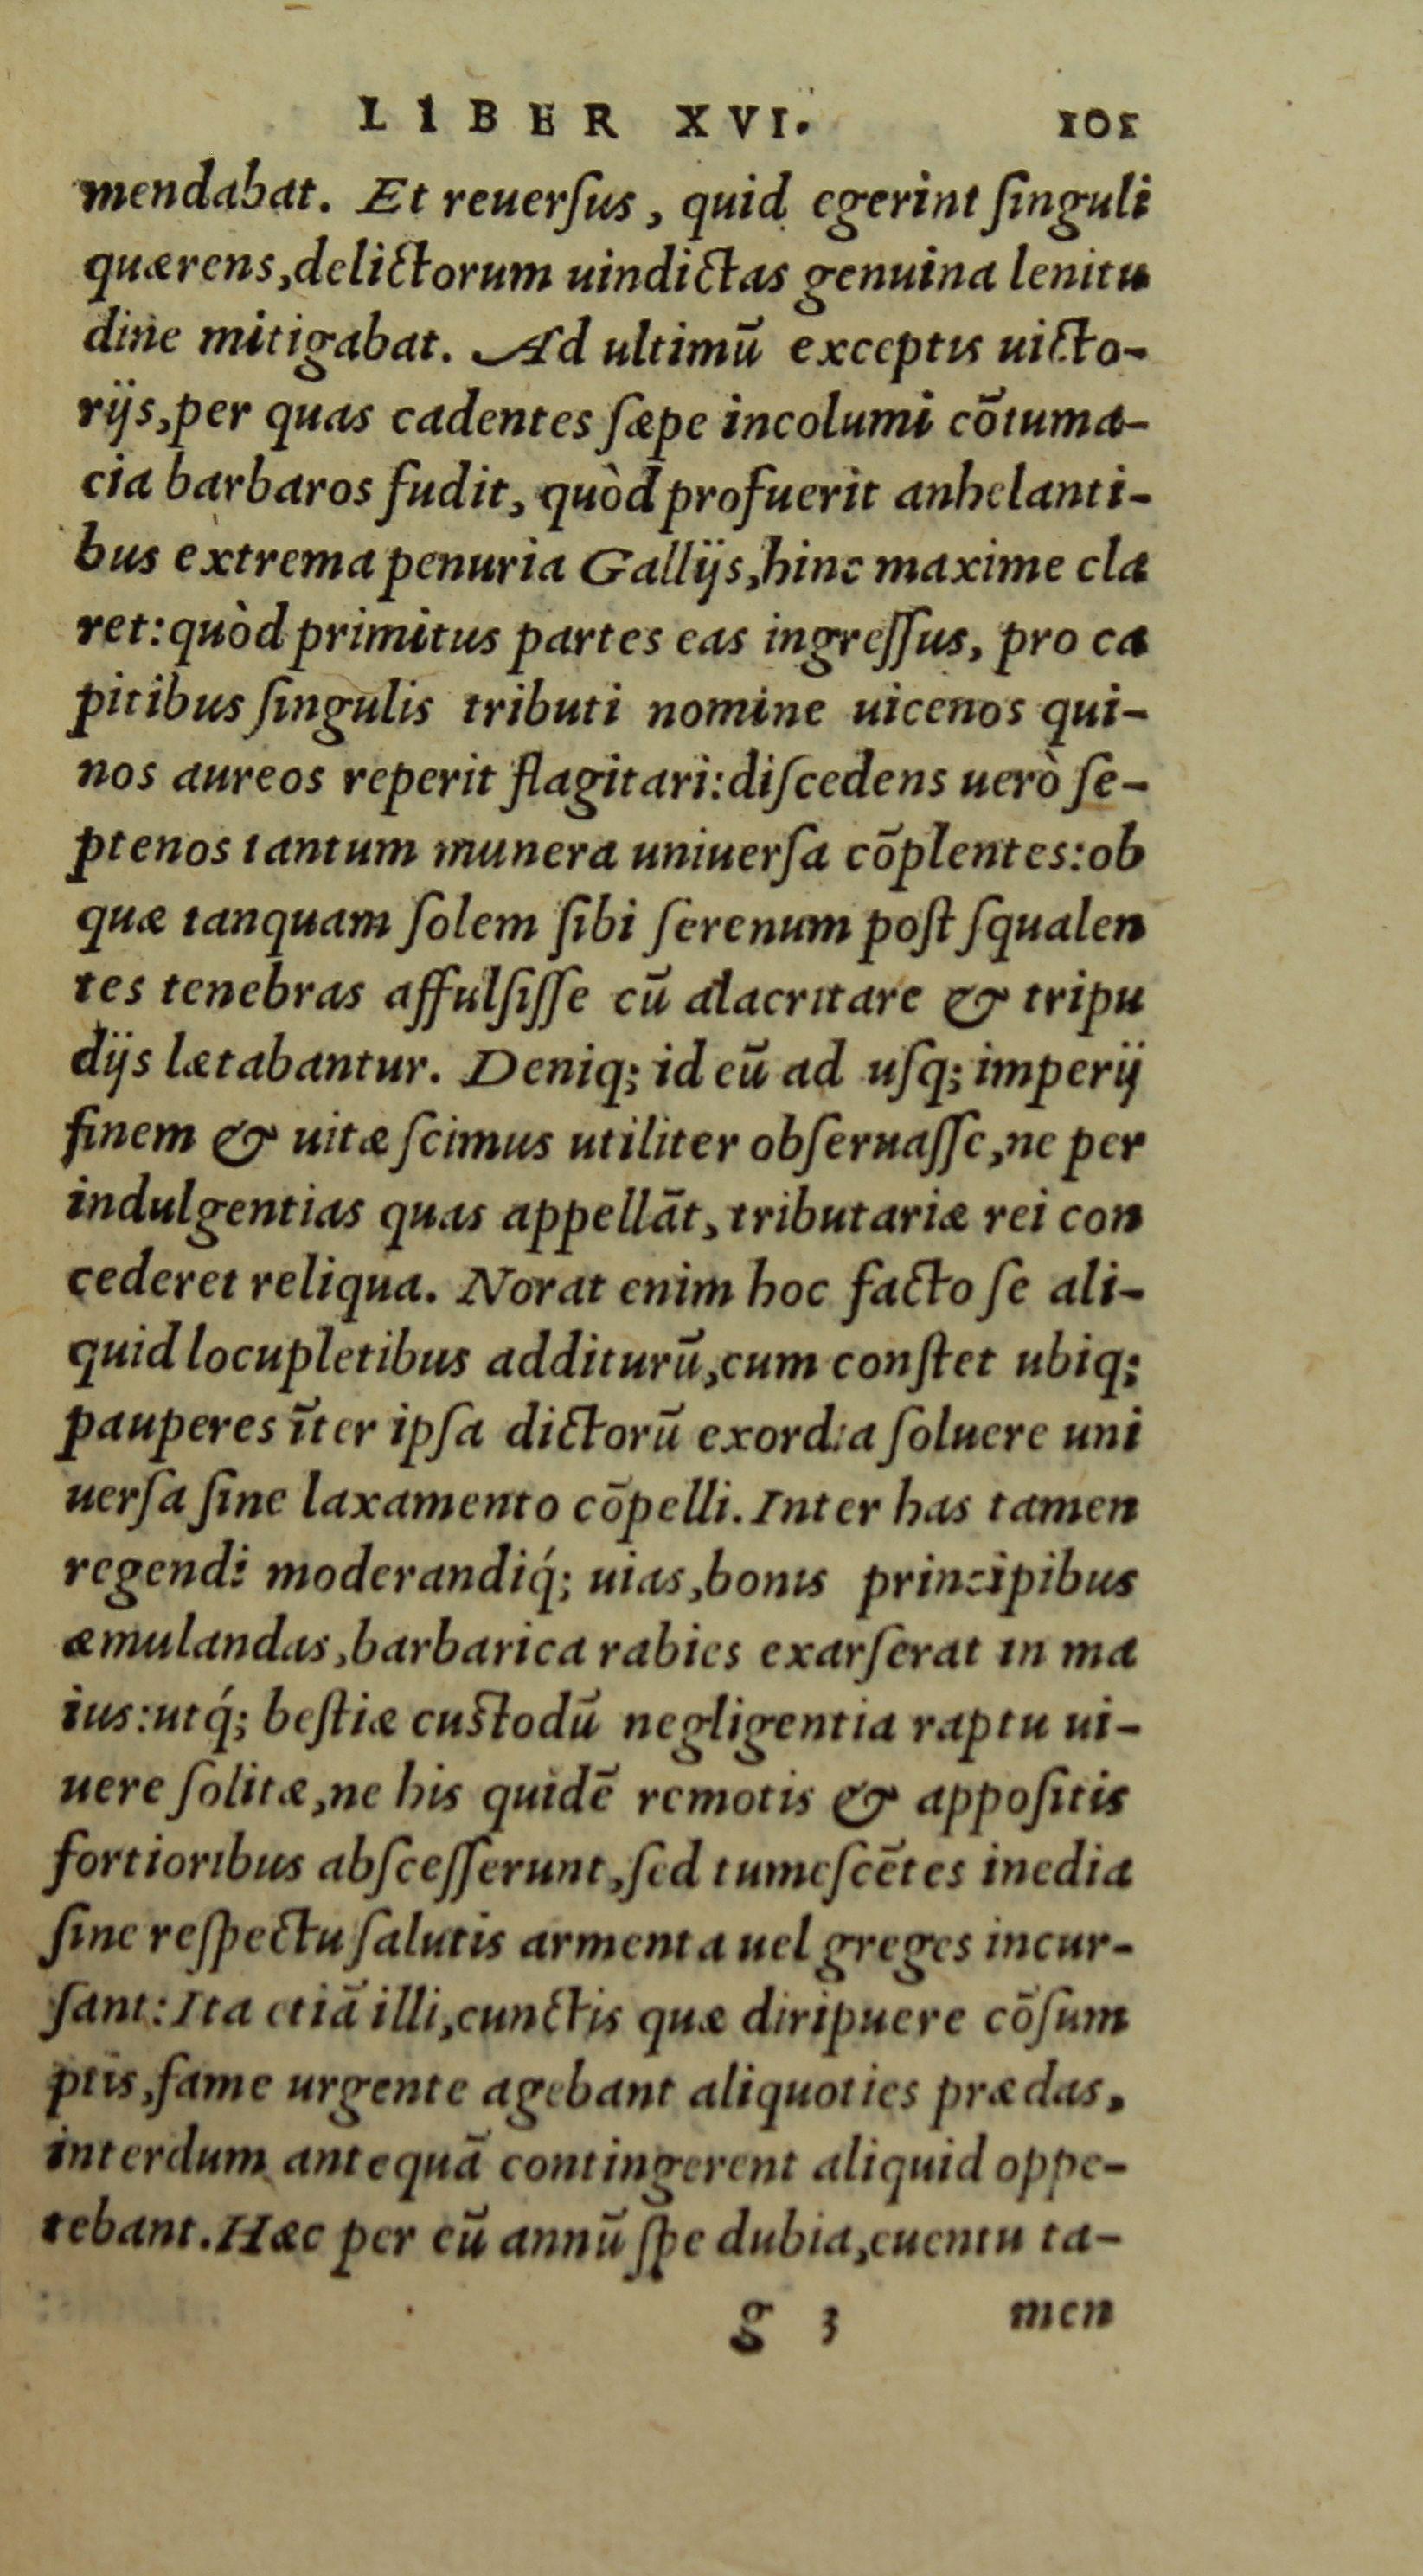 LIBER XVI. 101
mendabat. Et reuerſus, quid egerint ſinguli
quærens, delictorum uindictas genuina lenitu
dine mitigabat. Ad ultimū exceptis uicto-
rijs, per quas cadentes ſæpe incolumi cōtuma-
cia barbaros fudit, quòd profuerit anhelanti-
bus extrema penuria Gallijs, hinc maxime cla
ret: quòd primitus partes eas ingreſſus, pro ca
pitibus ſingulis tributi nomine uicenos qui-
nos aureos reperit flagitari: diſcedens uerò ſe-
ptenos tantum munera uniuerſa cōplentes: ob
quæ tanquam ſolem ſibi ſerenum poſt ſqualen
tes tenebras affulſiſſe cū alacritate & tripu
dijs lætabantur. Deniq; id eū ad uſq; imperij
finem & uitæ ſcimus utiliter obſeruaſſe, ne per
indulgentias quas appellāt, tributariæ rei con
cederet reliqua. Norat enim hoc facto ſe ali-
quid locupletibus additurū, cum conſtet ubiq;
pauperes īter ipſa dictorū exordia ſoluere uni
uerſa ſine laxamento cōpelli. Inter has tamen
regendi moderandiq́; uias, bonis principibus
æmulandas, barbarica rabies exarſerat in ma
ius: utq́; beſtiæ cuſtodū negligentia raptu ui-
uere ſolitæ, ne his quidē remotis & appoſitis
fortioribus abſceſſerunt, ſed tumeſcētes inedia
ſine reſpectu ſalutis armenta uel greges incur-
ſant: Ita etiā illi, cunctis quæ diripuere cōſum
ptis, fame urgente agebant aliquoties prædas,
interdum antequā contingerent aliquid oppe-
tebant. Hæc per eū annū ſpe dubia, euentu ta-
g 3 men